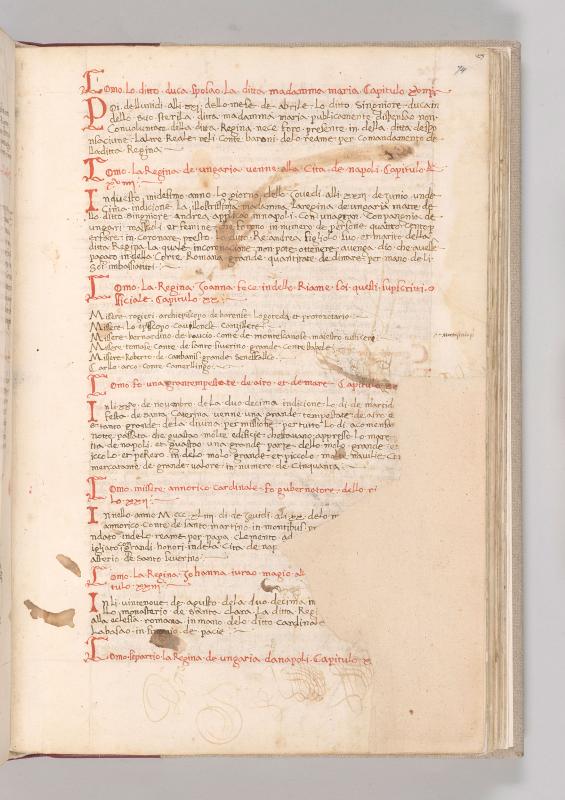 74
Como. Lo. ditto. duca. sposao. La. ditta. madamma. maria. Capitulo. xviii
Poi. dellundi. alli. xxi. dello. mese. de. abrile. Lo. ditto. Singniore. duca. in
dello. suo. sterila. ditta. madamma. maria. publicamente. dispensao. non
Convoluntate. della. ditta. Regina. ne ce. foro. presente. in. della. ditta. despo
nsaciune. La. tre. Reale. ne. li. Conti. baroni. dello. reame. per. comandamento. de
lla. ditta. Regina
Como. La. Regina. de. ungaria. venne. alla. Cita. de. napoli. Capitulo.
In. questo. midesimo. anno. Lo. giorno. dello. Jovedi. alli. xxiii. de. iunio. unde
Cima. indicione. La. illustrissima. madamma. La. regina. de. ungaria. matre. de
llo. ditto. Singniore. andrea. applicao. in. napoli. Con. una. gran. Companynia. de
ungari. masculi. et. femine. che. foro. no. in. numero. de. persone. quatro. cento. p
er. fare. in. coronare. presto. lo. ditto. Re. andrea. figliolo. suo. et. marito. della
ditta. Regina. La. quale. incoronacione. non. pote. ottenere. avenga. dio. che. avesse
pagato. in. della. Corte. Romana. grande. quantitate. de. dinare. per. mano. de. li
Soi. imbassiaturi
Como. La. Regina. Joanna. fece. in. dello. Riame. soi. questi. supscritti. o
fficiale. Capitulo. xx
Missere. rogieri. archiepiscopo. de. barense. Logoteta. et. protonotario
Missere. Lo. episcopo. cavillense. Conzillere
Missere. bernardino. de. baucio. conte. de. montescaioso. maiestro. iusticiere
Missere. tomase. Conte. de. santo. siverino. grande. conestabele
Missere. Roberto. de. cambanis. grande. Senescallco
Carllo. arco. conte. Camerllingo
Como. fo. una. gran. tempestate. de. airo. et. de. mare. Capitulo.
In. li. xxv. de. novembro. dela. duo. decima. indicione. Lo. di. de. martedi
festa. de. santa. Caterina. venne. una. grande. tempestate. de. airo. e
e. tanto. grande. dela. divina. permissione. per. tutto. Lo. di. a. comensa
notte. passata. che. guastao. molte. edificie. che. stavano. appresso. lo. mare
tta. de. napoli. et. guastao. una. grande. parte. dello. molo. grande. et
iccolo. et. perero. in. delo. molo. grande. et. piccolo. molte. navilie. Con
mercatantie. de. grande. valore. in. numero. de. Cinquanta
Como. missere. annorico. cardinale. fo. gubernatore. dello. ri
Lo. xxii
In. nello. anno. M. ccc. xliiii. di. de. Jovidi. ali. xx. delo. m
annorico. Conte. de. santo. martino. in. montibus. pr
ndato. in. delo. reame. per. papa. clemento. ad
igliato. i. grandi. honori. in. dela. Cita. de. nap
asterio. de. santo. severino
Como. La. Regina. Johanna. iurao. magio.
tulo. xxiii
In. li. vintenove. de. agusto. dela. duo. decima. in
Llo. monasterio. de. Santa. Clara. La. ditta. Reg
alla. eclesia. romana. in. mano. delo. ditto. cardinale
La. basao. in. signio. de. pace
Como. se. partio. La. Regina. de. ungaria. da. napoli. Capitulo. x